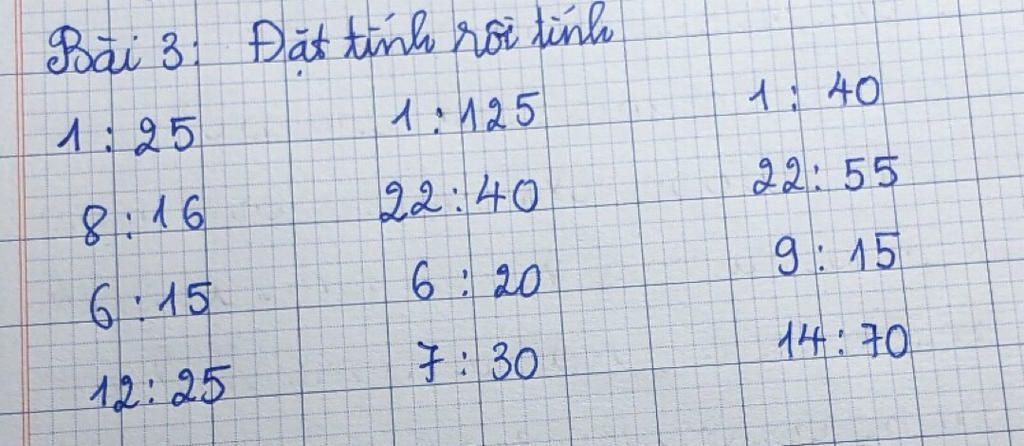 Bài 3: Đặt tính rồi tính
1 : 25 1 : 125 1 : 40
8 : 16 22 : 40 22 : 55
6 : 15 6 : 20 9 : 15
12 : 25 7 : 30 14 : 70